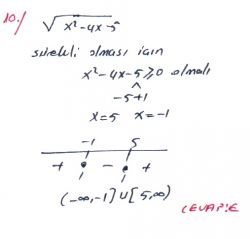 10./ √x²-4x-5
sürekli olması için
x²-4x-5≥0 olmalı
-5+1
x=5 x=-1
-1 5
+ - +
(-∞,-1]∪[5,∞)
CEVAP:E